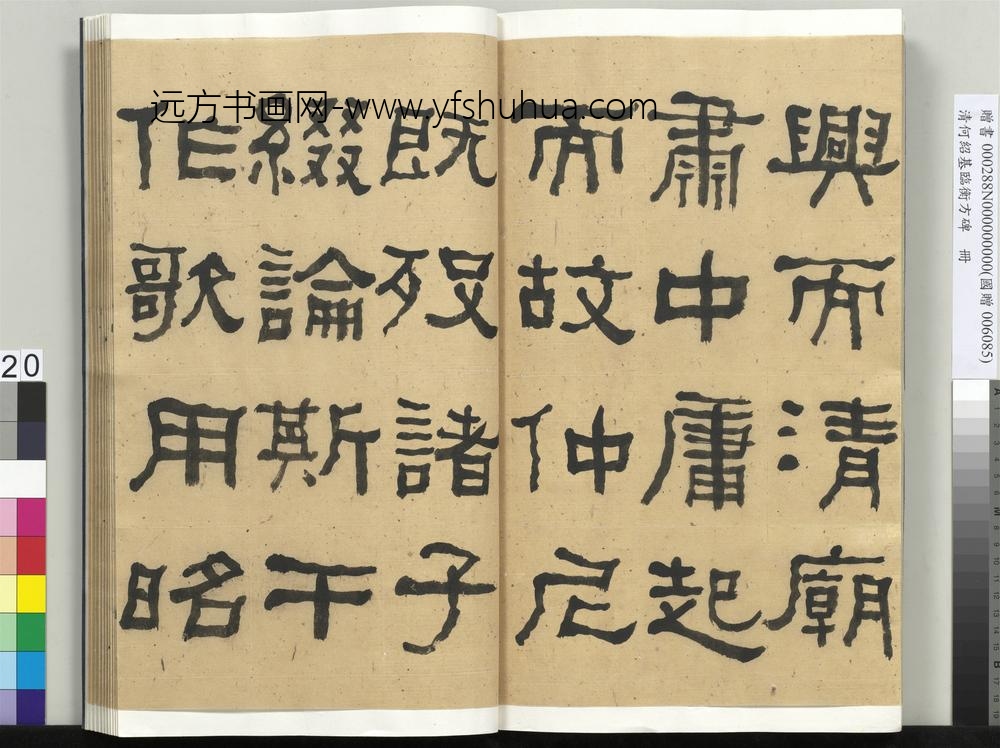 興而清廟
肅中庸起
而故仲尼
既歿諸子
綴論斯干
作歌用昭
远方书画网-www.yfshuhua.com
贈書 000288N000000000(國贈 006085)
清何紹基臨衡方碑 冊
20